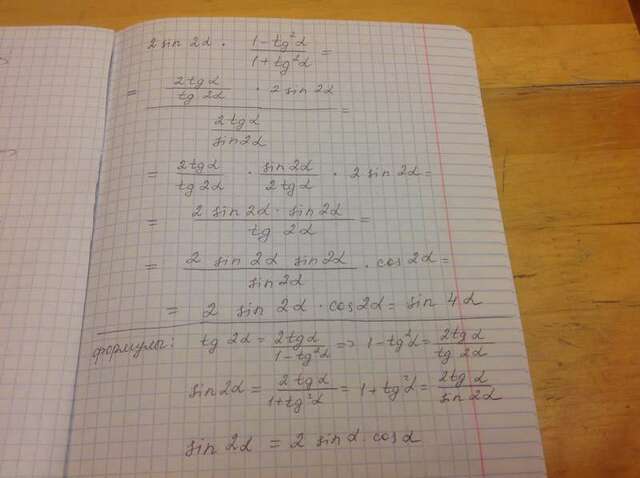 2 sin 2α · (1 - tg²α)/(1 + tg²α) =
= ((2tgα)/(tg 2α) · 2 sin 2α)/((2tgα)/(sin 2α)) =
= (2tgα)/(tg 2α) · (sin 2α)/(2tgα) · 2 sin 2α =
= (2 sin 2α · sin 2α)/(tg 2α) =
= (2 sin 2α sin 2α)/(sin 2α) · cos 2α =
= 2 sin 2α · cos 2α = sin 4α
формулы: tg 2α = (2tgα)/(1 - tg²α) => 1 - tg²α = (2tgα)/(tg 2α)
sin 2α = (2tgα)/(1 + tg²α) = 1 + tg²α = (2tgα)/(sin 2α)
sin 2α = 2 sin α · cos α